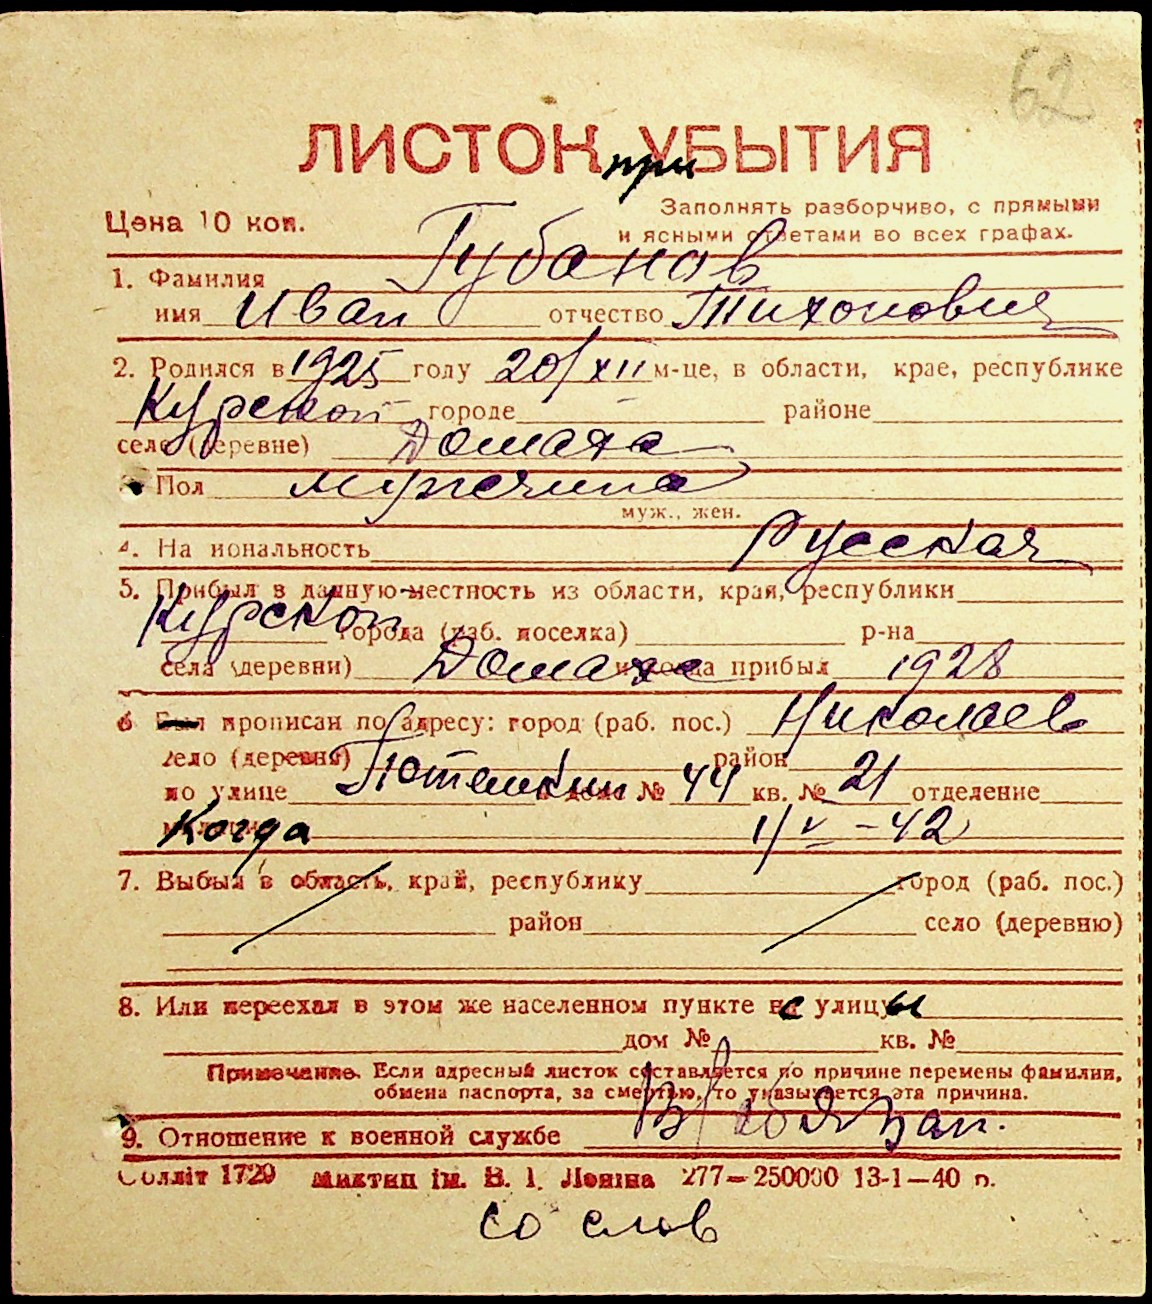 62
ЛИСТОК при УБЫТИЯ
Цена 10 коп.
Заполнять разборчиво, с прямыми
и ясными ответами во всех графах.
1. Фамилия Губанов
имя Иван отчество Тихонович
2. Родился в 1925 году 20/XII м-це, в области, крае, республике
Курской городе районе
селе (деревне) Домаха
Пол мужчина
муж., жен.
4. Национальность Русская
5. Прибыл в данную местность из области, края, республики
Курской города (раб. поселка) р-на
села (деревни) Домаха и когда прибыл 1928
6 Был прописан по адресу: город (раб. пос.) Николаев
село (деревня) район
по улице Потемкин дом № 44 кв. № 21 отделение
Когда 1/V-42
7. Выбыл в область, край, республику город (раб. пос.)
район село (деревню)
8. Или переехал в этом же населенном пункте с улицы
дом № кв. №
Примечание. Если адресный листок составляется по причине перемены фамилии,
обмена паспорта, за смертью, то указывается эта причина.
9. Отношение к военной службе В/обязан.
Облліт 1729 Миктип ім. В. І. Леніна 277—250000 13-1—40 р.
со слов